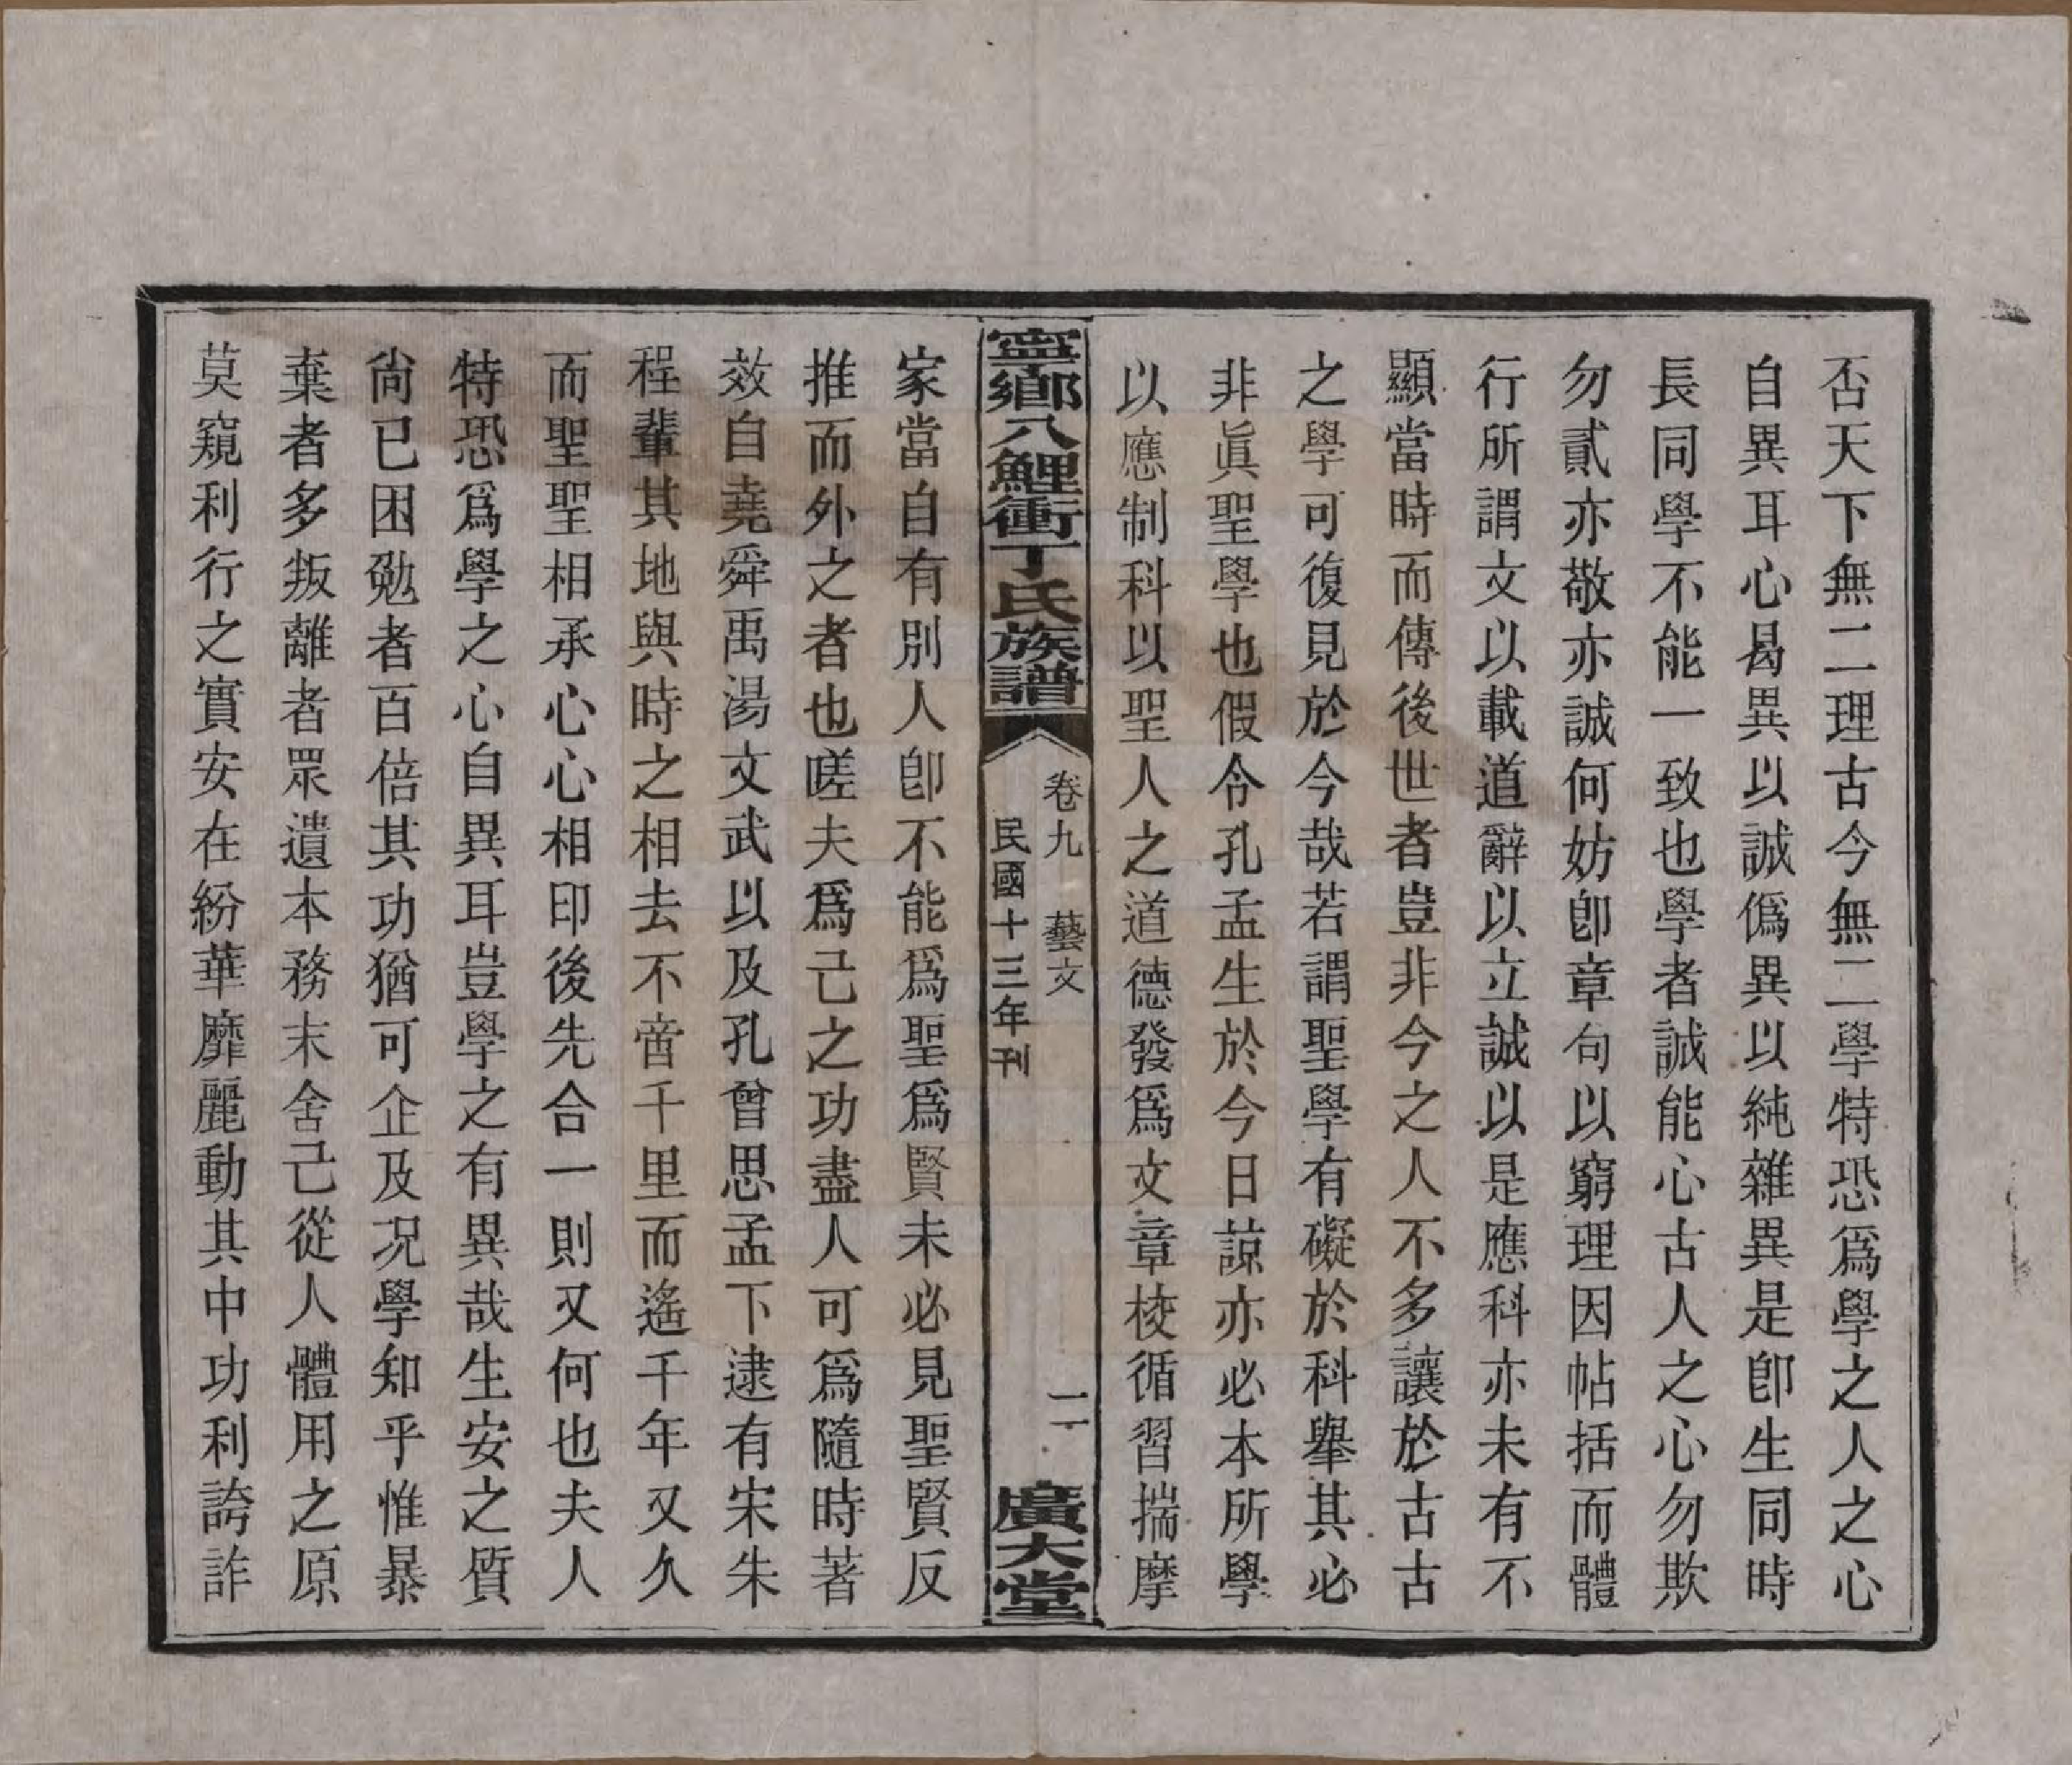 否天下無二理古今無二學特恐爲學之人之心
自異耳心曷異以誠僞異以純雜異是卽生同時
長同學不能一致也學者誠能心古人之心勿欺
勿貳亦敬亦誠何妨卽章句以窮理因帖括而體
行所謂文以載道辭以立誠以是應科亦未有不
顯當時而傳後世者豈非今之人不多讓於古古
之學可復見於今哉若謂聖學有礙於科舉其必
非眞聖學也假令孔孟生於今日諒亦必本所學
以應制科以聖人之道德發爲文章校循習揣摩
寧鄉八鯉衝丁氏族譜
卷九 藝文
民國十三年刊
二
廣大堂
家當自有別人卽不能爲聖爲賢未必見聖賢反
推而外之者也嗟夫爲己之功盡人可爲隨時著
效自堯舜禹湯文武以及孔曾思孟下逮有宋朱
程輩其地與時之相去不啻千里而遙千年又久
而聖聖相承心心相印後先合一則又何也夫人
特恐爲學之心自異耳豈學之有異哉生安之質
尙已困勉者百倍其功猶可企及况學知乎惟暴
棄者多叛離者眾遺本務末舍己從人體用之原
莫窺利行之實安在紛華靡麗動其中功利誇詐